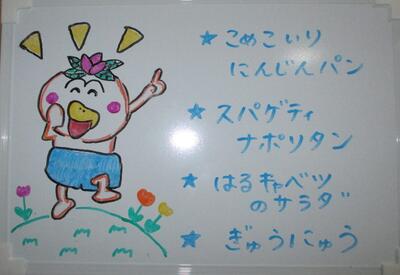 ★ こめこいり
にんじんパン
★ スパゲティ
ナポリタン
★ はるキャベツ
のサラダ
★ ぎゅうにゅう